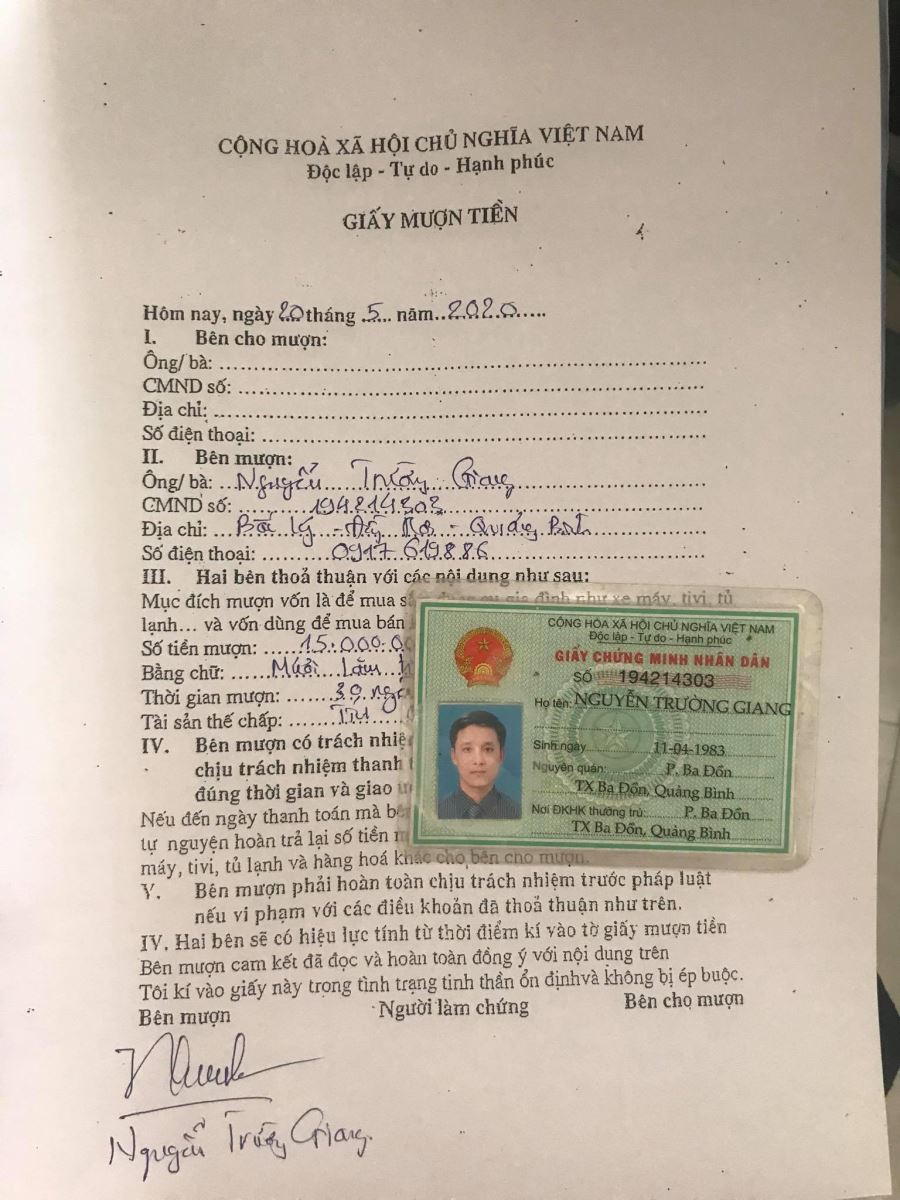 CỘNG HOÀ XÃ HỘI CHỦ NGHĨA VIỆT NAM
Độc lập - Tự do - Hạnh phúc
GIẤY MƯỢN TIỀN
Hôm nay, ngày 20 tháng 5 năm 2020
I. Bên cho mượn:
Ông/ bà:
CMND số:
Địa chỉ:
Số điện thoại:
II. Bên mượn:
Ông/ bà: Nguyễn Trường Giang
CMND số: 194214303
Địa chỉ: - Quảng Bình
Số điện thoại: 0917 619886
III. Hai bên thoả thuận với các nội dung như sau:
Mục đích mượn vốn là để mua gia đình như xe máy, tivi, tủ
lạnh... và vốn dùng để mua bán
Số tiền mượn: 15.000.0
Bằng chữ: Mười Lăm
Thời gian mượn: 30
Tài sản thế chấp:
IV. Bên mượn có trách
chịu trách nhiệm thanh
đúng thời gian và giao
Nếu đến ngày thanh toán mà
tự nguyện hoàn trả lại số tiền
máy, tivi, tủ lạnh và hàng hoá khác cho bên cho mượn.
V. Bên mượn phải hoàn toàn chịu trách nhiệm trước pháp luật
nếu vi phạm với các điều khoản đã thoả thuận như trên.
IV. Hai bên sẽ có hiệu lực tính từ thời điểm kí vào tờ giấy mượn tiền
Bên mượn cam kết đã đọc và hoàn toàn đồng ý với nội dung trên
Tôi kí vào giấy này trong tình trạng tinh thần ổn định và không bị ép buộc.
Bên mượn Người làm chứng Bên cho mượn
Nguyễn Trường Giang
CỘNG HÒA XÃ HỘI CHỦ NGHĨA VIỆT NAM
Độc lập - Tự do - Hạnh phúc
GIẤY CHỨNG MINH NHÂN DÂN
SỐ 194214303
Họ tên: NGUYỄN TRƯỜNG GIANG
Sinh ngày 11-04-1983
Nguyên quán: P. Ba Đồn
TX Ba Đồn, Quảng Bình
Nơi ĐKHK thường trú: P. Ba Đồn
TX Ba Đồn, Quảng Bình